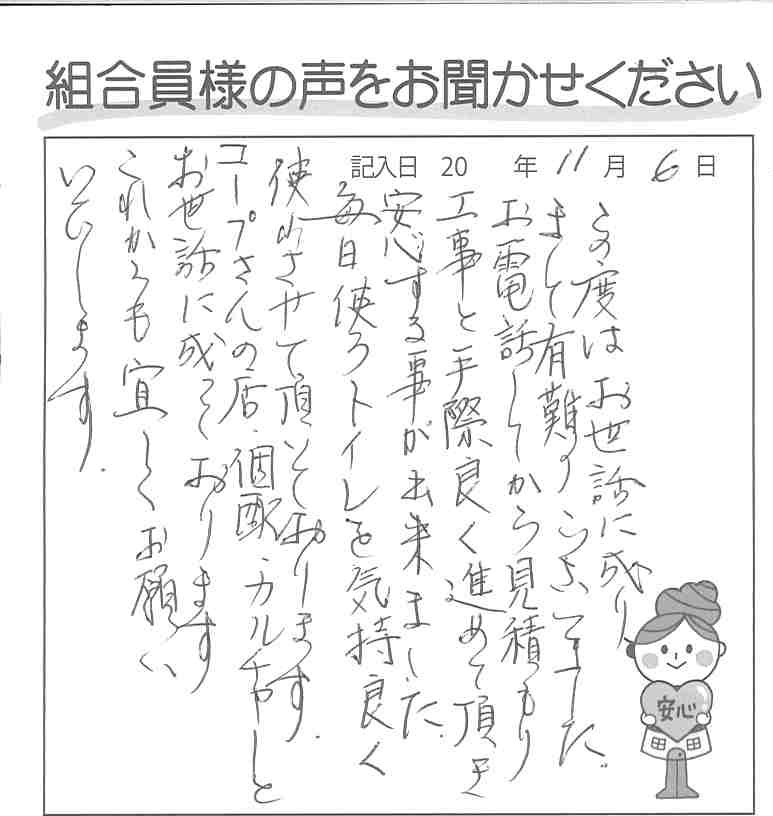 組合員様の声をお聞かせください
記入日 20 年 11 月 6 日
この度はお世話に成り
まして有難うございました。
お電話してから見積もり
工事と手際良く進めて頂き
安心する事が出来ました。
毎日使うトイレを気持良く
使わさせて頂いております。
コープさんの店、個配、カルチャーと
お世話に成っております
これからも宜しくお願い
いたします。
安心